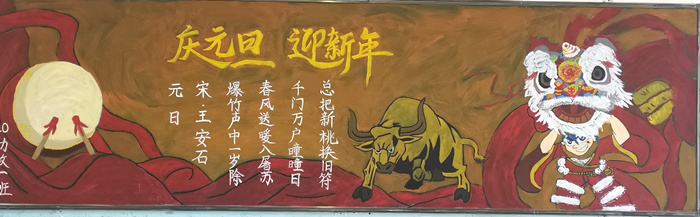 庆元旦 迎新年
元日
宋·王安石
爆竹声中一岁除
春风送暖入屠苏
千门万户曈曈日
总把新桃换旧符
幼教一班